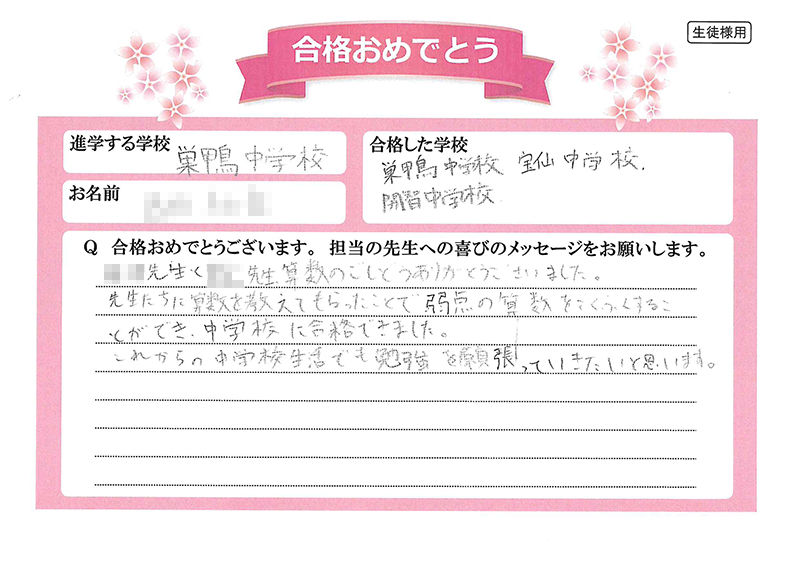 合格おめでとう
生徒様用
進学する学校
巣鴨中学校
お名前
合格した学校
巣鴨中学校 宝仙中学校.
開智中学校
Q 合格おめでとうございます。担当の先生への喜びのメッセージをお願いします。
先生と 先生算数のごしどうありがとうございました。
先生たちに算数を教えてもらったことで弱点の算数をこくふくするこ
とができ、中学校に合格できました。
これからの中学校生活でも勉強を願張っていきたいと思います。